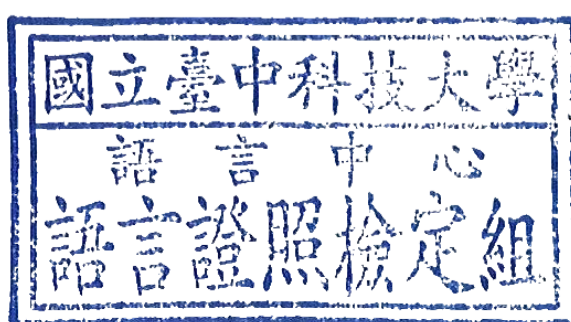 國立臺中科技大學
語言中心
語言證照檢定組